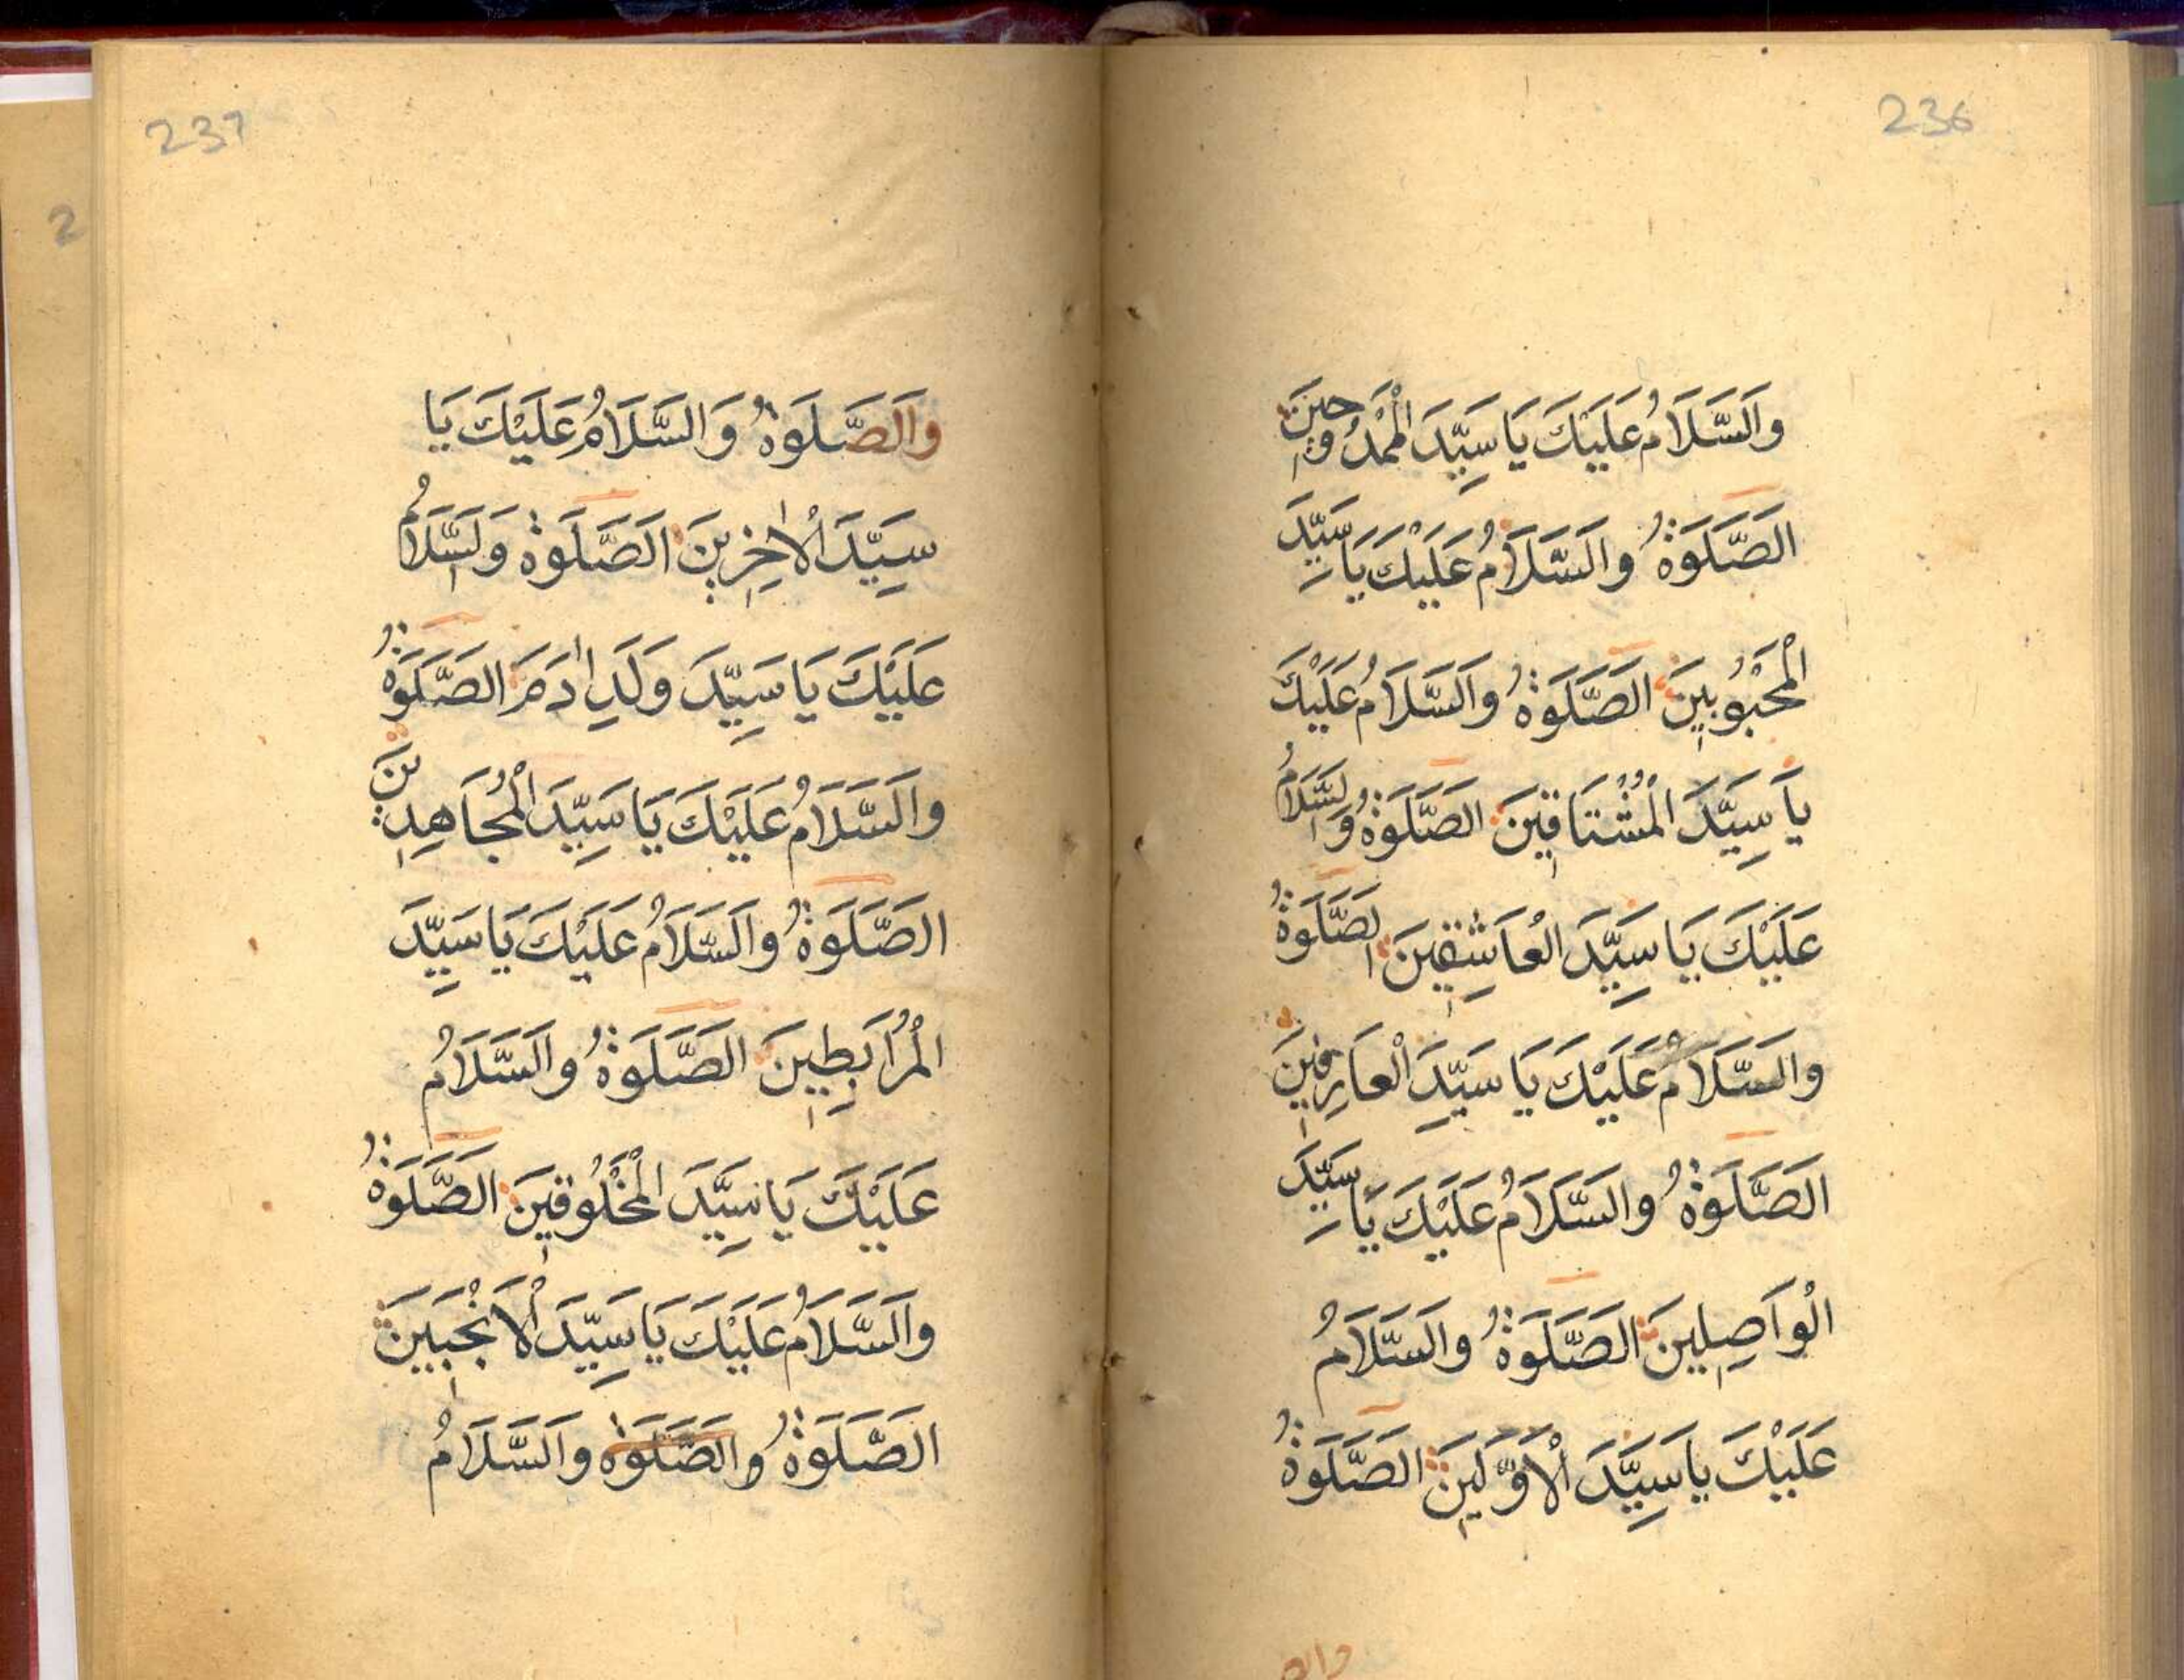 236
وَالسَّلَامُ عَلَيْكَ يَا سَيِّدَ الْمَمْدُوحِينَ
الصَّلَوةُ وَالسَّلَامُ عَلَيْكَ يَا سَيِّدَ
الْمَحْبُوبِينَ الصَّلَوةُ وَالسَّلَامُ عَلَيْكَ
يَا سَيِّدَ الْمُشْتَاقِينَ الصَّلَوةُ وَالسَّلَامُ
عَلَيْكَ يَا سَيِّدَ الْعَاشِقِينَ الصَّلَوةُ
وَالسَّلَامُ عَلَيْكَ يَا سَيِّدَ الْعَارِفِينَ
الصَّلَوةُ وَالسَّلَامُ عَلَيْكَ يَا سَيِّدَ
الْوَاصِلِينَ الصَّلَوةُ وَالسَّلَامُ
عَلَيْكَ يَا سَيِّدَ الْأَوَّلِينَ الصَّلَوةُ
237
وَالصَّلَوةُ وَالسَّلَامُ عَلَيْكَ يَا
سَيِّدَ الْاٰخِرِينَ الصَّلَوةُ وَلسَّلَامُ
عَلَيْكَ يَا سَيِّدَ وَلَدِ اٰدَمَ الصَّلَوةُ
وَالسَّلَامُ عَلَيْكَ يَا سَيِّدَ الْمُجَاهِدِينَ
الصَّلَوةُ وَالسَّلَامُ عَلَيْكَ يَا سَيِّدَ
الْمُرَابِطِينَ الصَّلَوةُ وَالسَّلَامُ
عَلَيْكَ يَا سَيِّدَ الْمَخْلُوقِينَ الصَّلَوةُ
وَالسَّلَامُ عَلَيْكَ يَا سَيِّدَ الْأَنْجَبِينَ
الصَّلَوةُ وَالصَّلَوٰه وَالسَّلَامُ
2